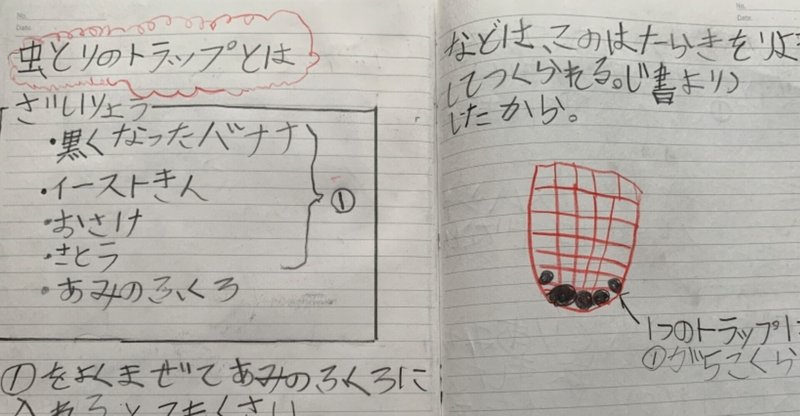 虫とりのトラップとは
ざいりょう
・黒くなったバナナ
・イーストきん
・おさけ
・さとう
・あみのふくろ
①
①をよくまぜてあみのふくろに
入れるとってもくさい
などは、このはたらきをりよ
してつくられる。じ書より)
したから。
1つのトラップに
①が5こくら